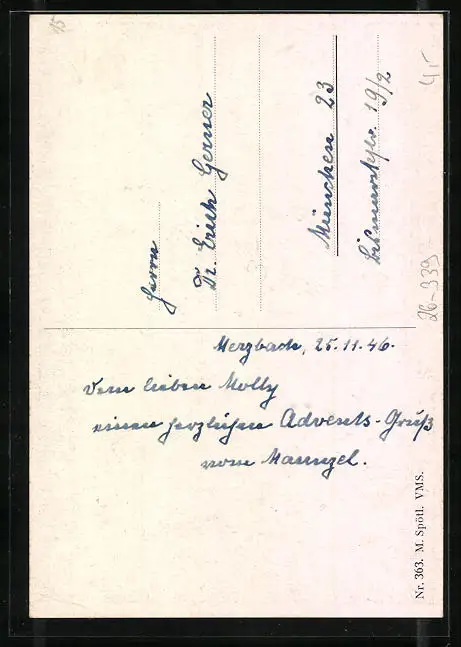 Merzbach, 25.11.46.
Dem lieben Molly
einen herzlichen Advents-Gruß
vom
Herrn
Dr. Erich Gerner
München 23
Bismarckstr. 19/2
Nr. 363. M. Spötl. VMS.
26-339
15